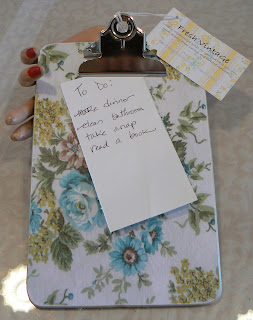 Fresh Vintage
To Do:
make dinner
clean bathroom
take a nap
read a book